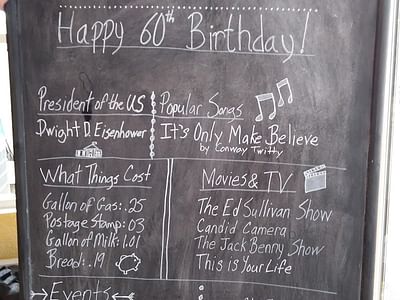 Happy 60th Birthday!
President of the US
Dwight D. Eisenhower
Popular Songs
It's Only Make Believe
by Conway Twitty
What Things Cost
Gallon of Gas: .25
Postage Stamp: 03
Gallon of Milk: 1.01
Bread: .19
Movies & TV
The Ed Sullivan Show
Candid Camera
The Jack Benny Show
This is Your Life
Events